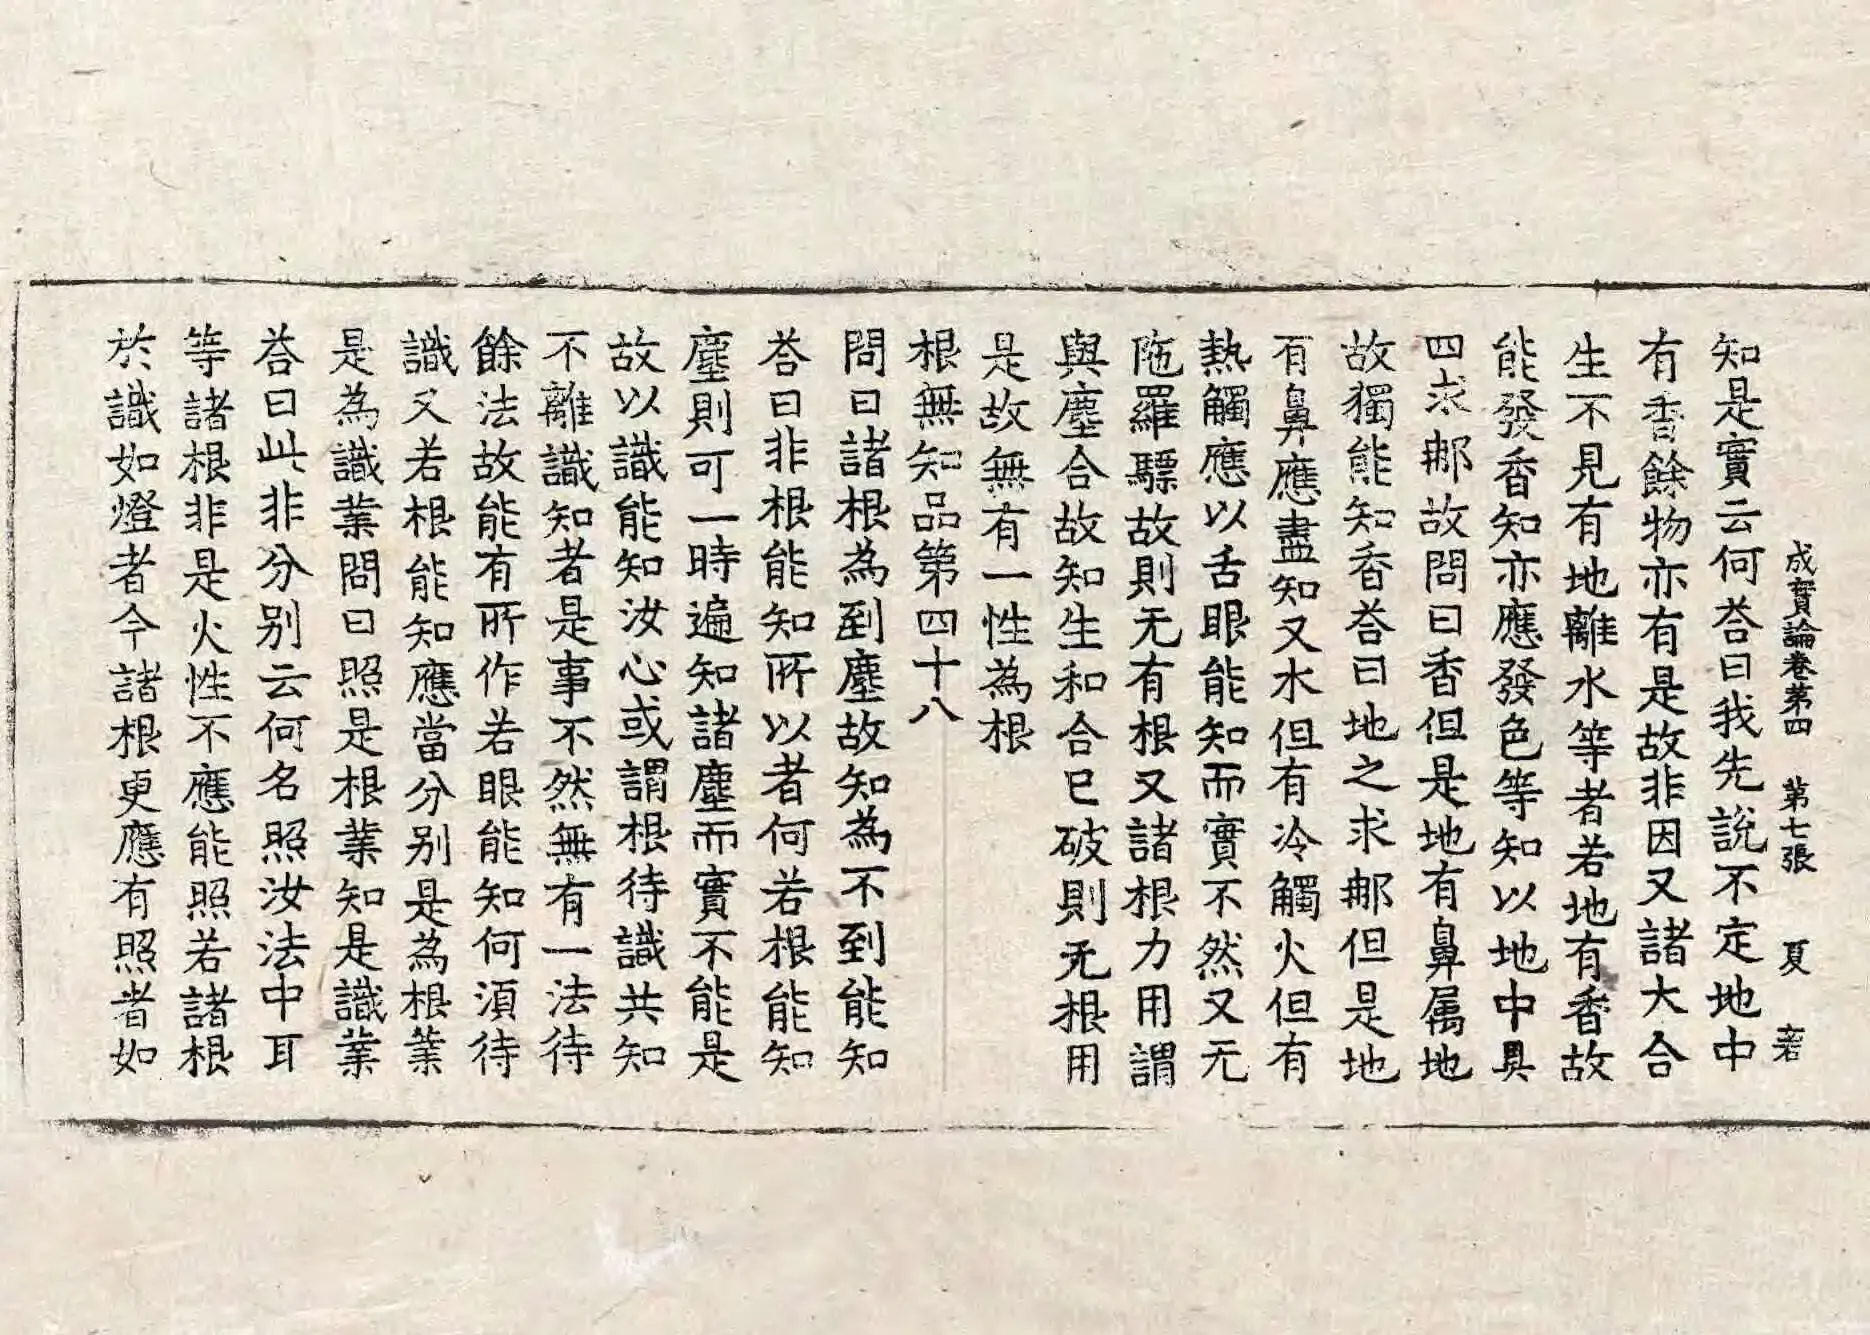 成實論卷第四 第七張 夏
知是實云何荅曰我先說不定地中
有香餘物亦有是故非因又諸大合
生不見有地離水等者若地有香故
能發香知亦應發色等知以地中具
四求那故問曰香但是地有鼻属地
故獨能知香荅曰地之求那但是地
有鼻應盡知又水但有冷觸火但有
熱觸應以舌眼能知而實不然又无
陁羅驃故則无有根又諸根力用謂
與塵合故知生和合已破則无根用
是故無有一性為根
根無知品第四十八
問曰諸根為到塵故知為不到能知
荅曰非根能知所以者何若根能知
塵則可一時遍知諸塵而實不能是
故以識能知汝心或謂根待識共知
不離識知者是事不然無有一法待
餘法故能有所作若眼能知何湏待
識又若根能知應當分别是為根業
是為識業問曰照是根業知是識業
荅曰此非分别云何名照汝法中耳
等諸根非是火性不應能照若諸根
於識如燈者今諸根更應有照者如